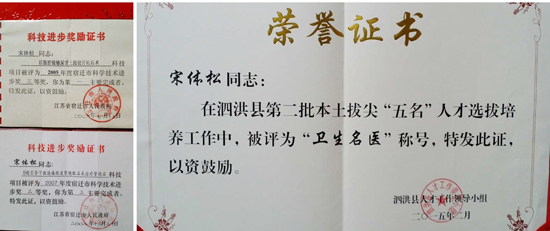 科技进步奖励证书
宋体松 同志：
科技
项目被评为2005年度宿迁市科学技术进
步奖三等奖，你为第一主要完成者。
特发此证，以资鼓励。
江苏省宿迁市人民政府
科技进步奖励证书
宋体松 同志：
科技
项目被评为2007年度宿迁市科学技术进
步奖三等奖，你为第三主要完成者。
特发此证，以资鼓励。
江苏省宿迁市人民政府
荣誉证书
宋体松同志：
在泗洪县第二批本土拔尖“五名”人才选拔培
养工作中，被评为“卫生名医”称号，特发此证，
以资鼓励。
泗洪县人才工作领导小组
二〇一五年二月